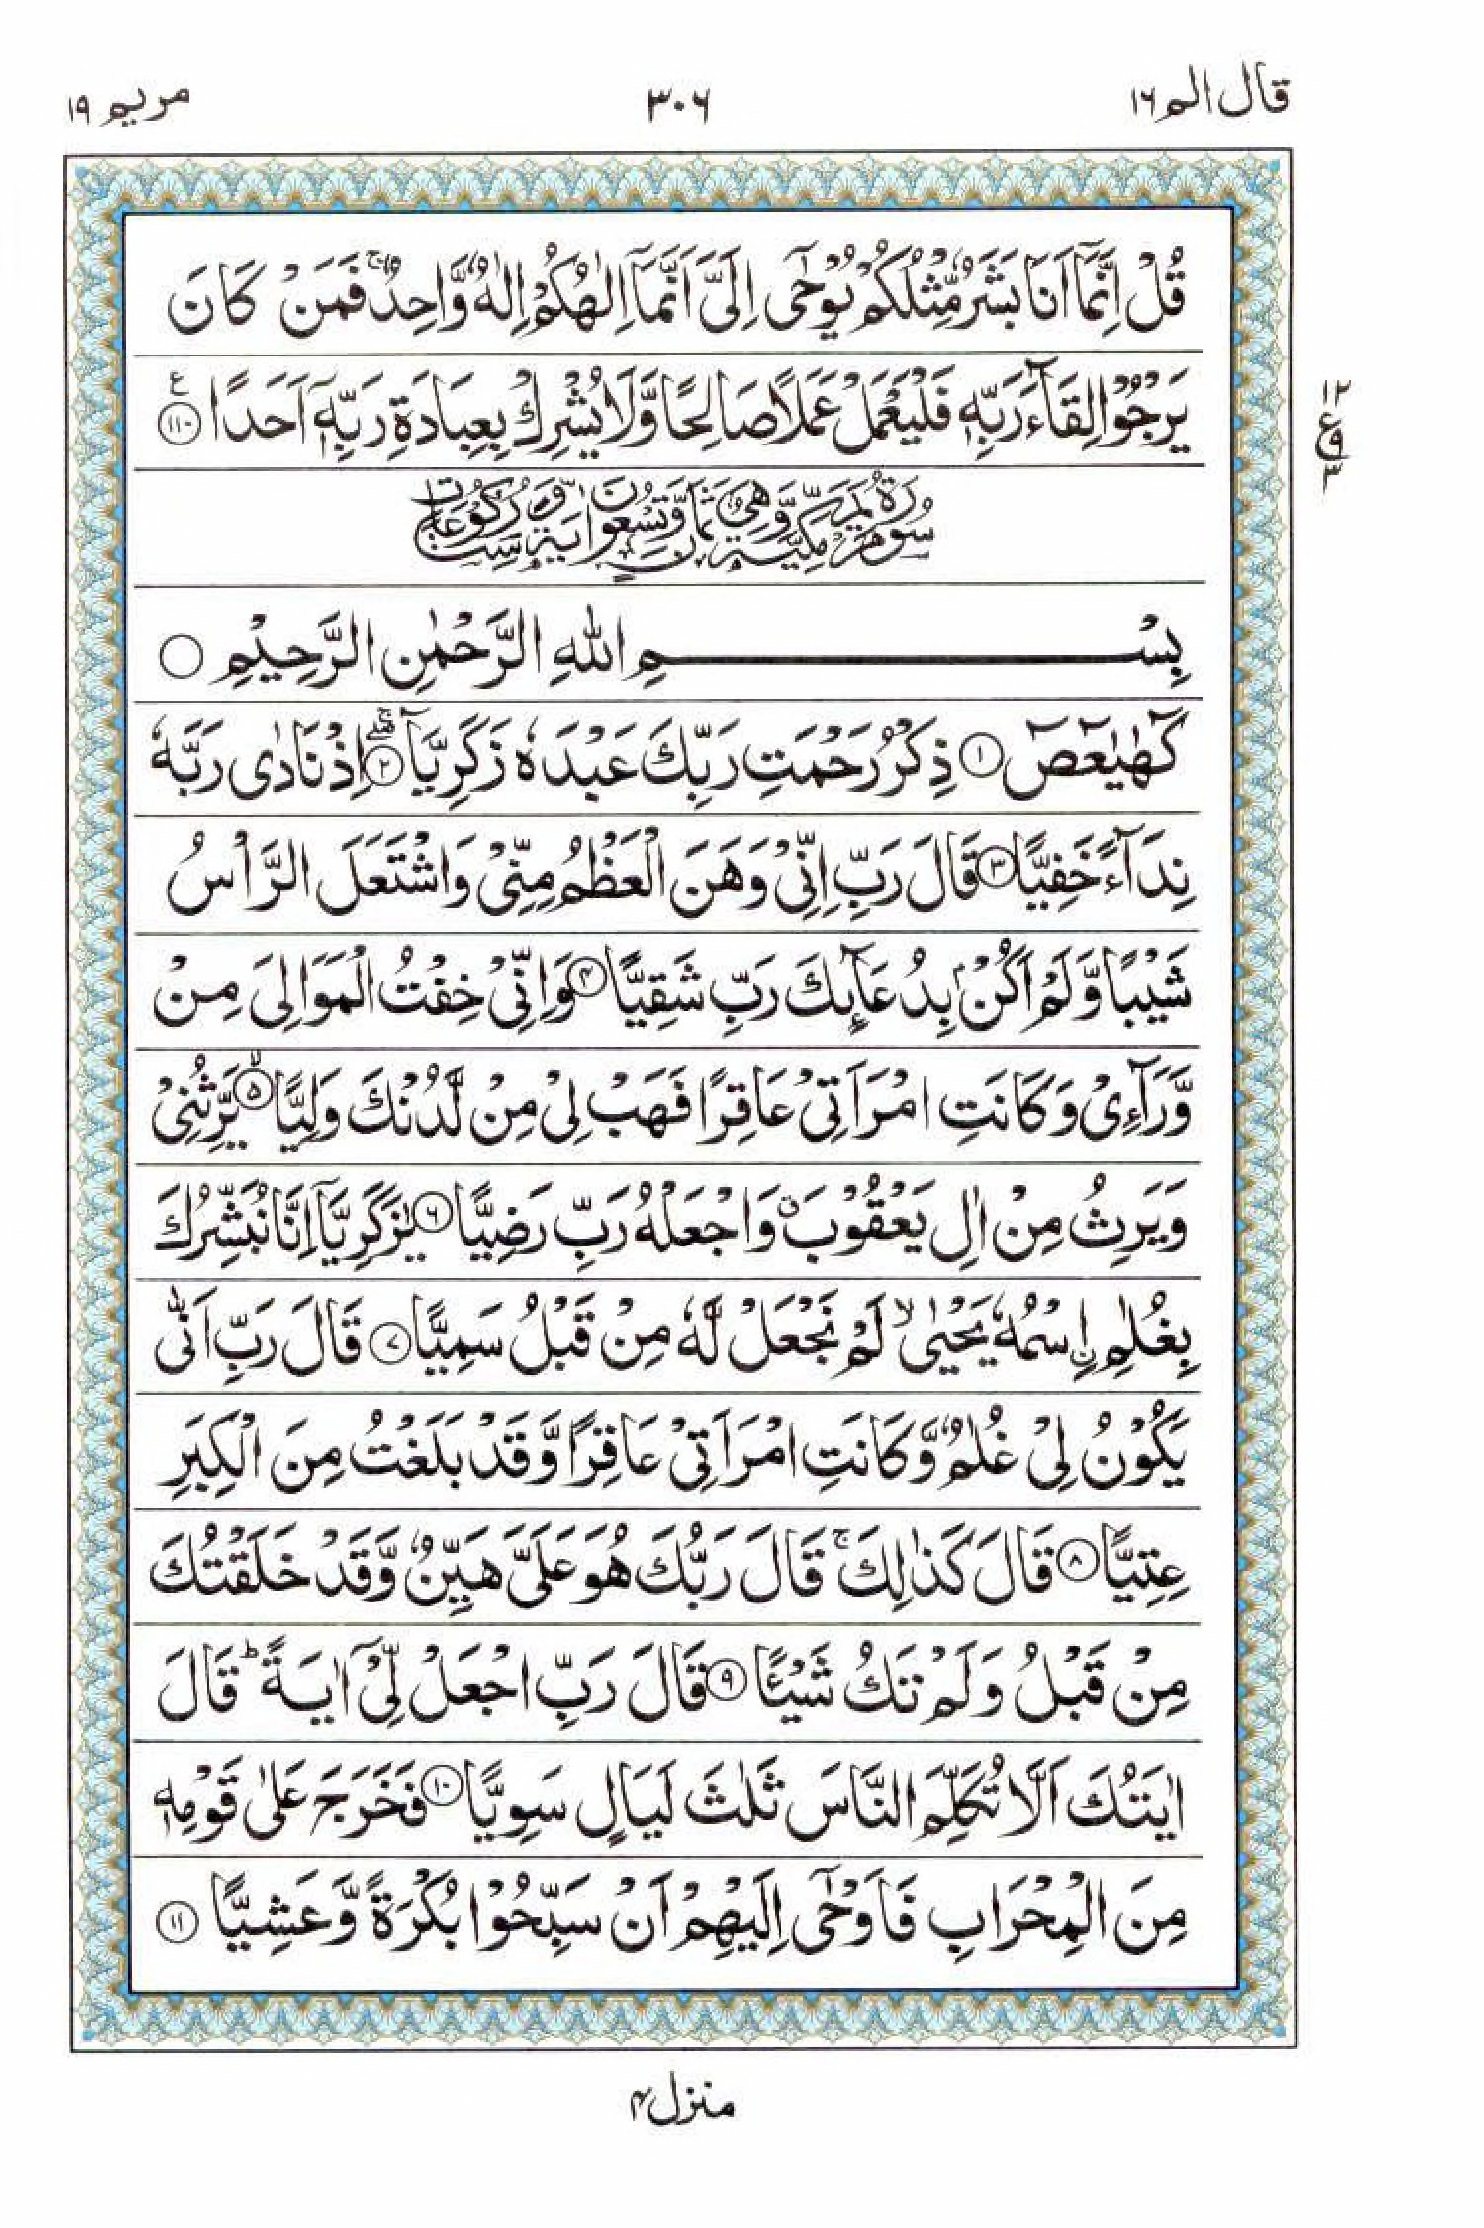 قال الم ١٦
٣٠٦
مريم ١٩
قُلْ اِنَّمَاۤ اَنَا بَشَرٌ مِّثْلُكُمْ يُوْحٰۤى اِلَىَّ اَنَّمَاۤ اِلٰهُكُمْ اِلٰهٌ وَّاحِدٌ ۚ فَمَنْ كَانَ
يَرْجُوْا لِقَآءَ رَبِّهٖ فَلْيَعْمَلْ عَمَلًا صَالِحًا وَّلَا يُشْرِكْ بِعِبَادَةِ رَبِّهٖۤ اَحَدًا ۧ ١١٠
١٢
ع
٩
٣
سُوْرَةُ مَرْيَمَ مَكِّيَّةٌ وَّهِىَ ثَمَانٌ وَّتِسْعُوْنَ اٰيَةً وَّسِتُّ رُكُوْعَاتٍ
بِسْمِ اللهِ الرَّحْمٰنِ الرَّحِيْمِ
كٓهٰيٰعٓصٓ ١ ذِكْرُ رَحْمَتِ رَبِّكَ عَبْدَهٗ زَكَرِيَّاۤ ٢ اِذْ نَادٰى رَبَّهٗ
نِدَآءً خَفِيًّا ٣ قَالَ رَبِّ اِنِّىْ وَهَنَ الْعَظْمُ مِنِّىْ وَاشْتَعَلَ الرَّاْسُ
شَيْبًا وَّلَمْ اَكُنْۢ بِدُعَآئِكَ رَبِّ شَقِيًّا ٤ وَاِنِّىْ خِفْتُ الْمَوَالِىَ مِنْ
وَّرَآءِىْ وَكَانَتِ امْرَاَتِىْ عَاقِرًا فَهَبْ لِىْ مِنْ لَّدُنْكَ وَلِيًّا ۙ ٥ يَّرِثُنِىْ
وَيَرِثُ مِنْ اٰلِ يَعْقُوْبَ ۖ وَاجْعَلْهُ رَبِّ رَضِيًّا ٦ يٰزَكَرِيَّاۤ اِنَّا نُبَشِّرُكَ
بِغُلٰمِ ۨاسْمُهٗ يَحْيٰى ۙ لَمْ نَجْعَلْ لَّهٗ مِنْ قَبْلُ سَمِيًّا ٧ قَالَ رَبِّ اَنّٰى
يَكُوْنُ لِىْ غُلٰمٌ وَّكَانَتِ امْرَاَتِىْ عَاقِرًا وَّقَدْ بَلَغْتُ مِنَ الْكِبَرِ
عِتِيًّا ٨ قَالَ كَذٰلِكَ ۚ قَالَ رَبُّكَ هُوَ عَلَىَّ هَيِّنٌ وَّقَدْ خَلَقْتُكَ
مِنْ قَبْلُ وَلَمْ تَكُ شَيْئًا ٩ قَالَ رَبِّ اجْعَلْ لِّىْۤ اٰيَةً ؕ قَالَ
اٰيَتُكَ اَلَّا تُكَلِّمَ النَّاسَ ثَلٰثَ لَيَالٍ سَوِيًّا ١٠ فَخَرَجَ عَلٰى قَوْمِهٖ
مِنَ الْمِحْرَابِ فَاَوْحٰۤى اِلَيْهِمْ اَنْ سَبِّحُوْا بُكْرَةً وَّعَشِيًّا ١١
منزل ٤